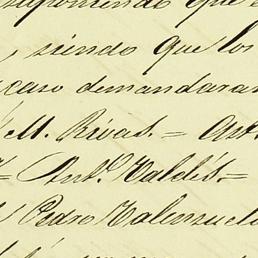 suponiendo que e
, siendo que los
caso demandaran
M. Rivas. = Ant.
= Ant.º Valdés. =
Pedro Valenzuel